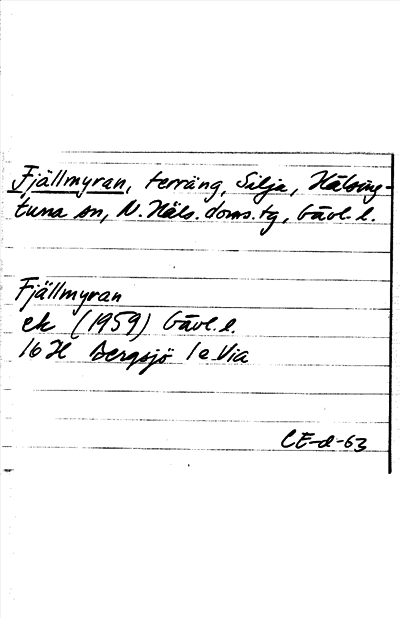 Fjällmyran, terräng, Silja, Hälsing-
tuna sn, N. Häls. doms.tg, Gävl. l.
Fjällmyran
ek (1959) Gävl. l.
16 H Bergsjö 1 e Via
CE-d-63